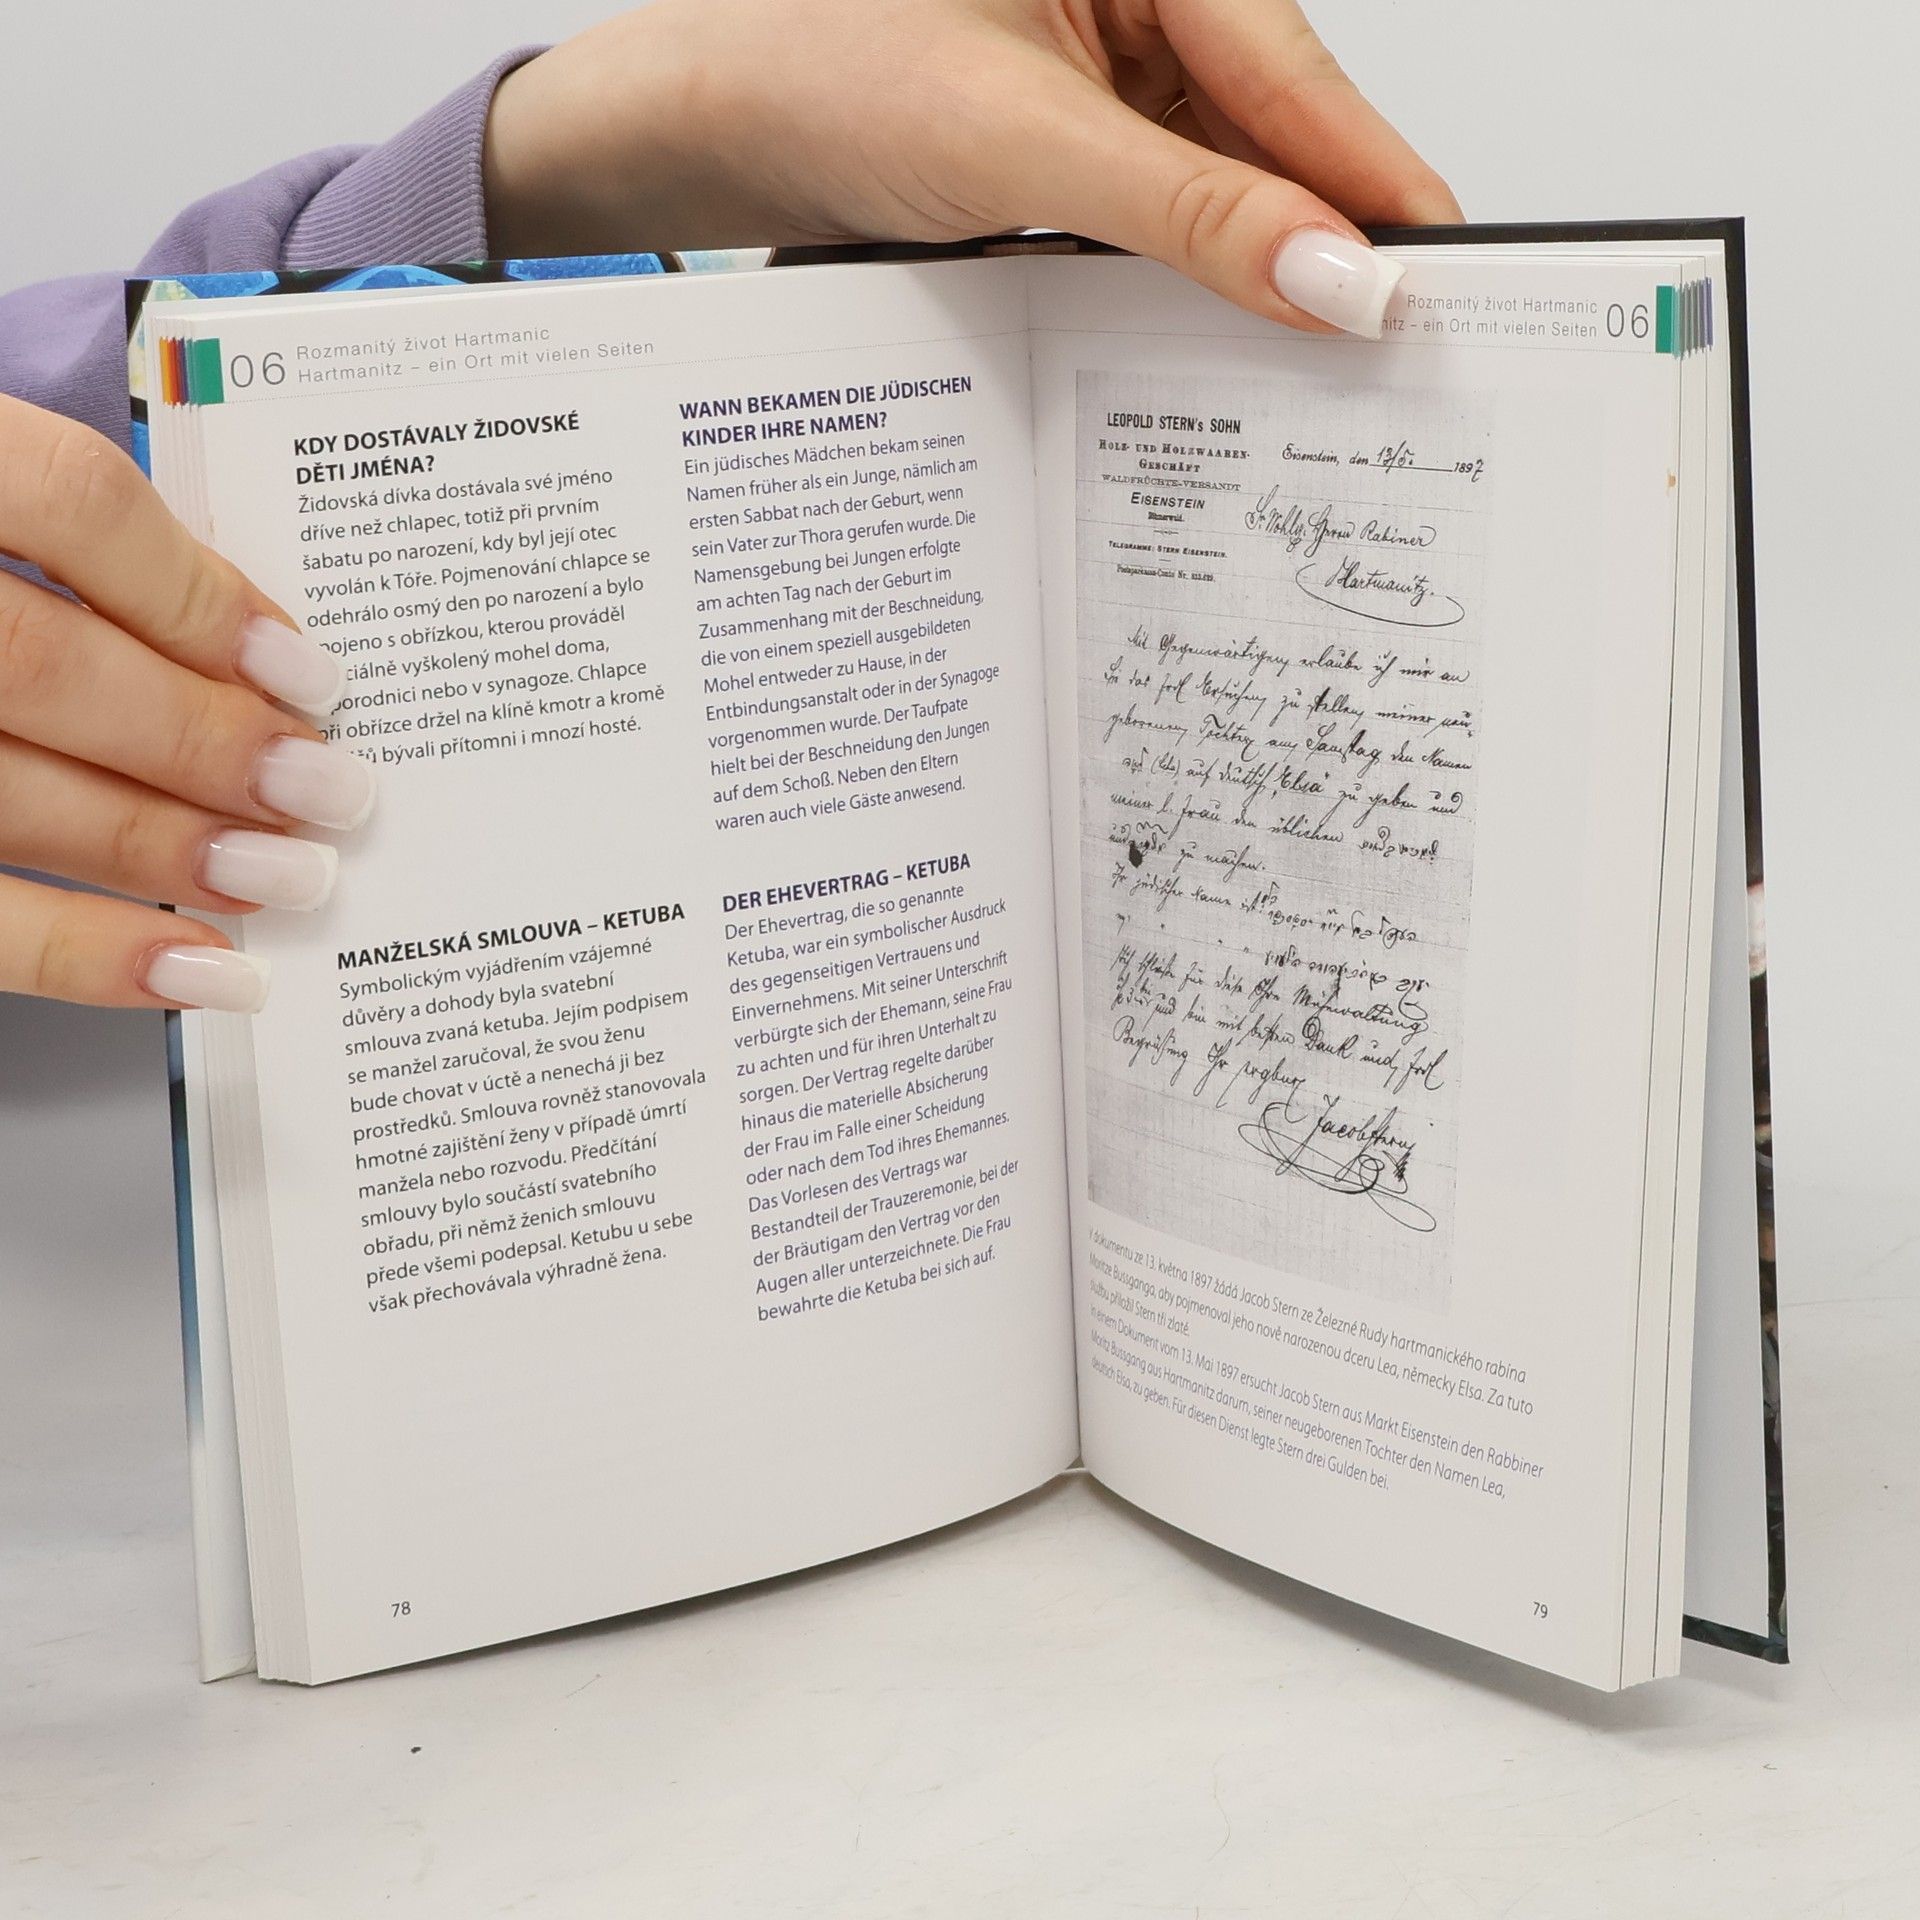 06 Rozmanitý život Hartmanic
Hartmanitz – ein Ort mit vielen Seiten
KDY DOSTÁVALY ŽIDOVSKÉ
DĚTI JMÉNA?
Židovská dívka dostávala své jméno
dříve než chlapec, totiž při prvním
šabatu po narození, kdy byl její otec
vyvolán k Tóře. Pojmenování chlapce se
odehrálo osmý den po narození a bylo
s obřízkou, kterou prováděl
vyškolený mohel doma,
nebo v synagoze. Chlapce
při obřízce držel na klíně kmotr a kromě
bývali přítomni i mnozí hosté.
MANŽELSKÁ SMLOUVA – KETUBA
Symbolickým vyjádřením vzájemné
důvěry a dohody byla svatební
smlouva zvaná ketuba. Jejím podpisem
se manžel zaručoval, že svou ženu
bude chovat v úctě a nenechá ji bez
prostředků. Smlouva rovněž stanovovala
hmotné zajištění ženy v případě úmrtí
manžela nebo rozvodu. Předčítání
smlouvy bylo součástí svatebního
obřadu, při němž ženich smlouvu
přede všemi podepsal. Ketubu u sebe
však přechovávala výhradně žena.
WANN BEKAMEN DIE JÜDISCHEN
KINDER IHRE NAMEN?
Ein jüdisches Mädchen bekam seinen
Namen früher als ein Junge, nämlich am
ersten Sabbat nach der Geburt, wenn
sein Vater zur Thora gerufen wurde. Die
Namensgebung bei Jungen erfolgte
am achten Tag nach der Geburt im
Zusammenhang mit der Beschneidung,
die von einem speziell ausgebildeten
Mohel entweder zu Hause, in der
Entbindungsanstalt oder in der Synagoge
vorgenommen wurde. Der Taufpate
hielt bei der Beschneidung den Jungen
auf dem Schoß. Neben den Eltern
waren auch viele Gäste anwesend.
DER EHEVERTRAG – KETUBA
Der Ehevertrag, die so genannte
Ketuba, war ein symbolischer Ausdruck
des gegenseitigen Vertrauens und
Einvernehmens. Mit seiner Unterschrift
verbürgte sich der Ehemann, seine Frau
zu achten und für ihren Unterhalt zu
sorgen. Der Vertrag regelte darüber
hinaus die materielle Absicherung
der Frau im Falle einer Scheidung
oder nach dem Tod ihres Ehemannes.
Das Vorlesen des Vertrags war
Bestandteil der Trauzeremonie, bei der
der Bräutigam den Vertrag vor den
Augen aller unterzeichnete. Die Frau
bewahrte die Ketuba bei sich auf.
78
Rozmanitý život Hartmanic
– ein Ort mit vielen Seiten 06
LEOPOLD STERN's SOHN
HOLZ- UND HOLZWAAREN-
GESCHÄFT
WALDFRÜCHTE-VERSANDT
EISENSTEIN
Böhmerwald.
TELEGRAMME: STERN EISENSTEIN.
Postsparkassa-Conto Nr.
Eisenstein, den 13/5. 1897
Herrn Rabiner
Hartmanitz.
Mit Gegenwärtigen erlaube ich mir an
Sie das Ersuchen zu stellen meiner neu-
geborenen Tochter am Samstag den Namen
auf deutsch „Elsa" zu geben und
meiner l. Frau den üblichen
und zu machen.
Ihr jüdischer Name ist
für diese Ihre Mühewaltung
und bin mit besten Dank und
Begrüßung Ihr
Jacob Stern
V dokumentu ze 13. května 1897 žádá Jacob Stern ze Železné Rudy hartmanického rabína
Moritze Bussganga, aby pojmenoval jeho nově narozenou dceru Lea, německy Elsa. Za tuto
službu přiložil Stern tři zlaté.
In einem Dokument vom 13. Mai 1897 ersucht Jacob Stern aus Markt Eisenstein den Rabbiner
Moritz Bussgang aus Hartmanitz darum, seiner neugeborenen Tochter den Namen Lea,
deutsch Elsa, zu geben. Für diesen Dienst legte Stern drei Gulden bei.
79